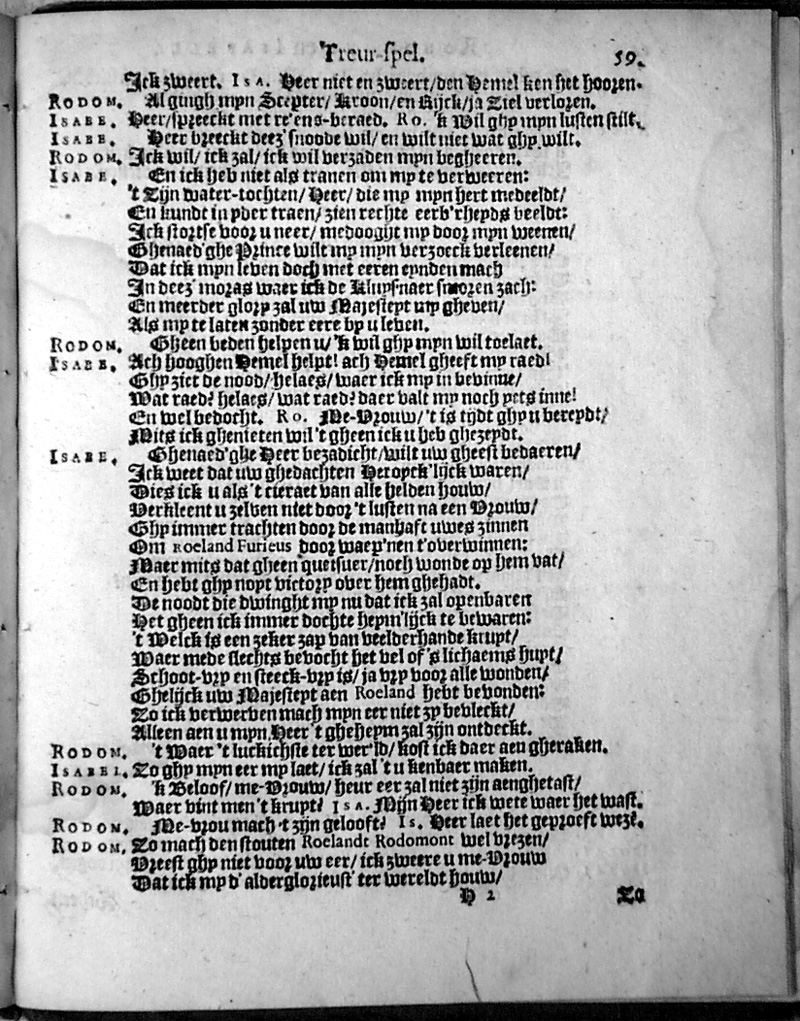 Treur-spel. 59.
Ick zweert. ISA. Heer niet en zweert/den Hemel ken het hooren.
RODOM. Al gingh mijn Scepter/ Kroon/en Rijck/ja Ziel verloren.
ISABE. Heer/spreeckt met re'ens-beraed. RO. 'k Wil ghy mijn lusten stilt.
ISABE. Heer breeckt deez' snoode wil/ en wilt niet wat ghy wilt.
RODOM. Ick wil/ ick zal/ ick wil verzaden mijn begheeren.
ISABE. En ick heb niet als tranen om my te verweeren:
't Zijn water-tochten/ Heer/ die my mijn hert medeeldt/
En kundt in yder traen/ zien rechte eerb'rheyds beeldt:
Ick stortse voor u neer/ medooght my door mijn weenen/
Ghenaed'ghe Prince wilt my mijn verzoeck verleenen/
Dat ick mijn leven doch met eeren eynden mach
In deez' moras waer ick de Kluysnaer smoren zach:
En meerder glory zal uw Majesteyt uyt gheven/
Als my te laten zonder eere by u leven.
RODOM. Gheen beden helpen u/ 'k wil ghy mijn wil toelaet.
ISABE. Ach hooghen Hemel helpt! ach Hemel gheeft my raed!
Ghy ziet de nood/ helaes/ waer ick my in bevinne/
Wat raed? helaes/ wat raed? daer valt my noch yets inne!
En wel bedocht. RO. Me-Vrouw/ 't is tijdt ghy u bereydt/
Mits ick ghenieten wil 't gheen ick u heb ghezeydt.
ISABE. Ghenaed'ghe Heer bezadicht/wilt uw gheest bedaeren/
Ick weet dat uw ghedachten Heroyck'lijck waren/
Dies ick u als 't cieraet van alle helden houw/
Verkleent u zelven niet door 't lusten na een Vrouw/
Ghy immer trachten door de manhaft uwes zinnen
Om Roeland Furieus door waep'nen t'overwinnen:
Maer mits dat gheen quetsuer/noch wonde op hem vat/
En hebt ghy noyt victory over hem ghehadt.
De noodt die dwinght my nu dat ick zal openbaren
Het gheen ick immer dochte heym'lijck te bewaren:
't Welck is een zeker zap van veelderhande kruyt/
Waer mede slechts bevocht het vel of 's lichaems huyt/
Schoot-vry en steeck-vry is/ ja vry voor alle wonden/
Ghelijck uw Majesteyt aen Roeland hebt bevonden:
Zo ick verwerven mach mijn eer niet zy bevleckt/
Alleen aen u mijn Heer 't gheheym zal zijn ontdeckt.
RODOM. 't Waer 't luckichste ter wer'ld/ kost ick daer aen gheraken.
ISABEL. Zo ghy mijn eer my laet/ ick zal 't u kenbaer maken.
RODOM. 'k Beloof/ me-Vrouw/ heur eer zal niet zijn aenghetast/
Waer vint men 't kruyt? ISA. Mijn Heer ick wete waer het wast.
RODOM. Me-vrou mach 't zijn gelooft? IS. Heer laet het geproeft weze.
RODOM. Zo mach den stouten Roelandt Rodomont wel vrezen/
Vreest ghy niet voor uw eer/ ick zweere u me-Vrouw
Dat ick my d'alderglorieust' ter wereldt houw/
H 2 Zo